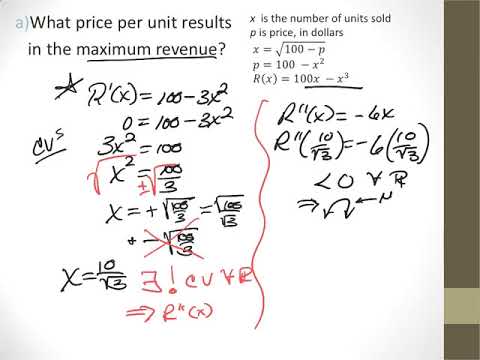 a)What price per unit results
in the maximum revenue?
x is the number of units sold
p is price, in dollars
x = √100 − p
p = 100 − x²
R(x) = 100x − x³
R'(x) = 100 - 3x²
0 = 100 - 3x²
CVˢ
3x² = 100
√x² = ±√100/3
x = +√100/3 = √100/√3
+ -√100/3
x = 10/√3 ∃! CV ∀ R
⇒ R"(x)
R"(x) = -6x
R"(10/√3) = -6(10/√3)
< 0 ∀ R
⇒ ∩ ←